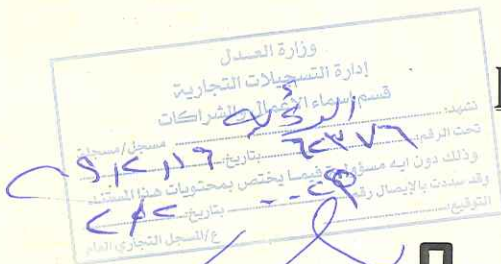 وزارة العــدل
إدارة التسجيلات التجارية
قسم أسماء الأعمال والشراكات
نشهد: مسجل/مسجلة
تحت الرقم: ٦٢٣٧٦ بتاريخ:
وذلك دون ايه مسؤولية فيمـا يختص بمحتويات هـذا المستند.
وقد سددت بالإيصال رقم بتاريخ:
التوقيع: ع/المسجل التجاري العام